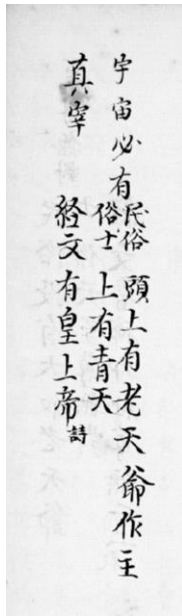 宇宙必有
真宰
民俗 頭上有老天爺作主
俗士 上有青天
經文有皇上帝 詩